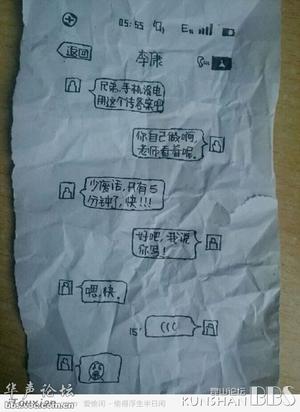 05:55 E
返回
李康
兄弟.手机没电
用这个传答案吧
你自己做啊,
老师看着呢.
少废话,只有5
分钟了,快!!!
好吧,我说
你写!
嗯,快.
15" (((
华声论坛
iTouxian
bbs.voc.com.cn
爱偷闲-偷得浮生半日闲
昆山论坛
KUNSHAN BBS